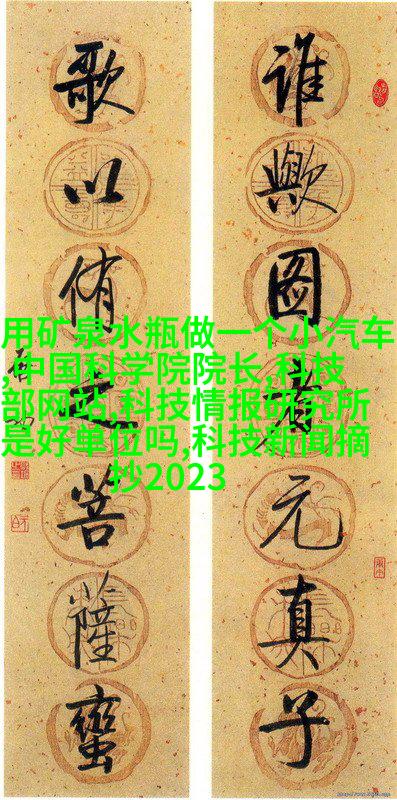 用矿泉水瓶做一个小汽车
,中国科学院院长,科技
部网站,科技情报研究所
是好单位吗,科技新闻摘
抄2023
谁歟图者元真子
歌以侑之菩薩蠻